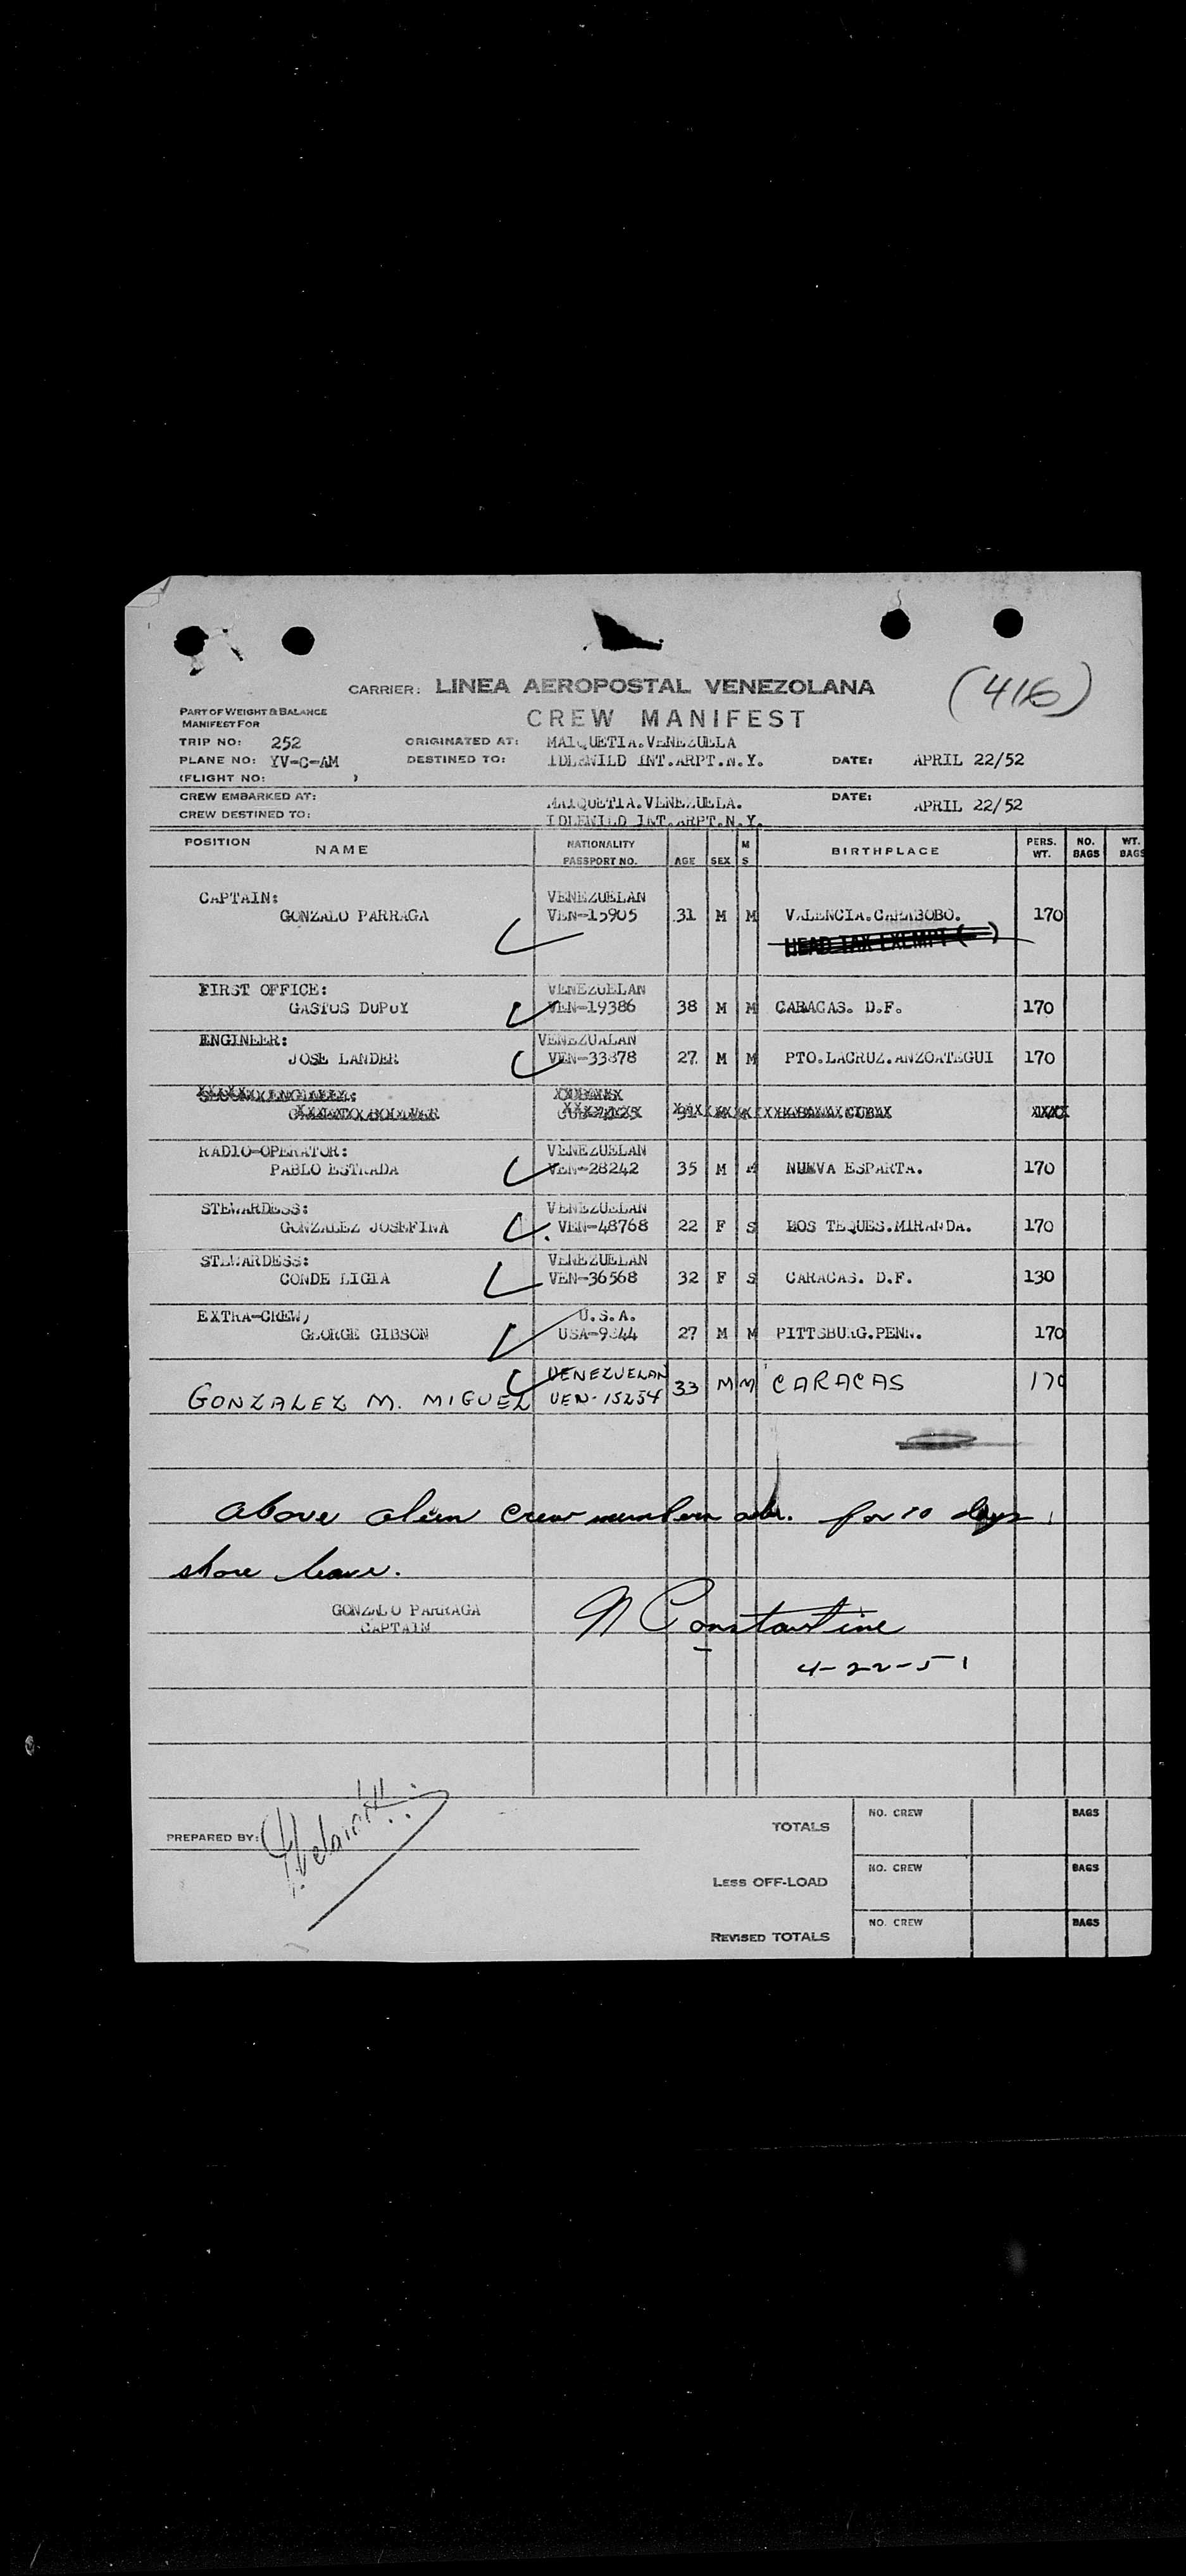 (416)
CARRIER: LINEA AEROPOSTAL VENEZOLANA
PART OF WEIGHT & BALANCE
MANIFEST FOR
CREW MANIFEST
TRIP NO: 252 ORIGINATED AT: MAIQUETIA.VENEZUELA
PLANE NO: YV-C-AM DESTINED TO: IDLEWILD INT.ARPT.N.Y. DATE: APRIL 22/52
(FLIGHT NO: )
CREW EMBARKED AT: MAIQUETIA.VENEZUELA. DATE: APRIL 22/52
CREW DESTINED TO: IDLEWILD INT.ARPT.N.Y.
POSITION NAME NATIONALITY PASSPORT NO. AGE SEX M S BIRTHPLACE PERS. WT. NO. BAGS WT. BAGS
CAPTAIN: VENEZUELAN
GONZALO PARRAGA VEN-15905 31 M M VALENCIA.CARABOBO. 170
HEAD TAX EXEMPT ( )
FIRST OFFICE: VENEZUELAN
GASTUS DUPUY VEN-19386 38 M M CARACAS. D.F. 170
ENGINEER: VENEZUALAN
JOSE LANDER VEN-33878 27 M M PTO.LACRUZ.ANZOATEGUI 170
RADIO-OPERATOR: VENEZUELAN
PABLO ESTRADA VEN-28242 35 M M NUEVA ESPARTA. 170
STEWARDESS: VENEZUELAN
GONZALEZ JOSEFINA VEN-48768 22 F S LOS TEQUES.MIRANDA. 170
STEWARDESS: VENEZUELAN
CONDE LIGIA VEN-36568 32 F S CARACAS. D.F. 130
EXTRA-CREW) U.S.A.
GEORGE GIBSON USA-9844 27 M M PITTSBURG.PENN. 170
VENEZUELAN
GONZALEZ M. MIGUEL VEN-15254 33 M M CARACAS 170
above alien crew members adm. for 10 days
shore leave.
GONZALO PARRAGA
CAPTAIN
N Constantine
4-22-51
PREPARED BY:
TOTALS NO. CREW BAGS
LESS OFF-LOAD NO. CREW BAGS
REVISED TOTALS NO. CREW BAGS